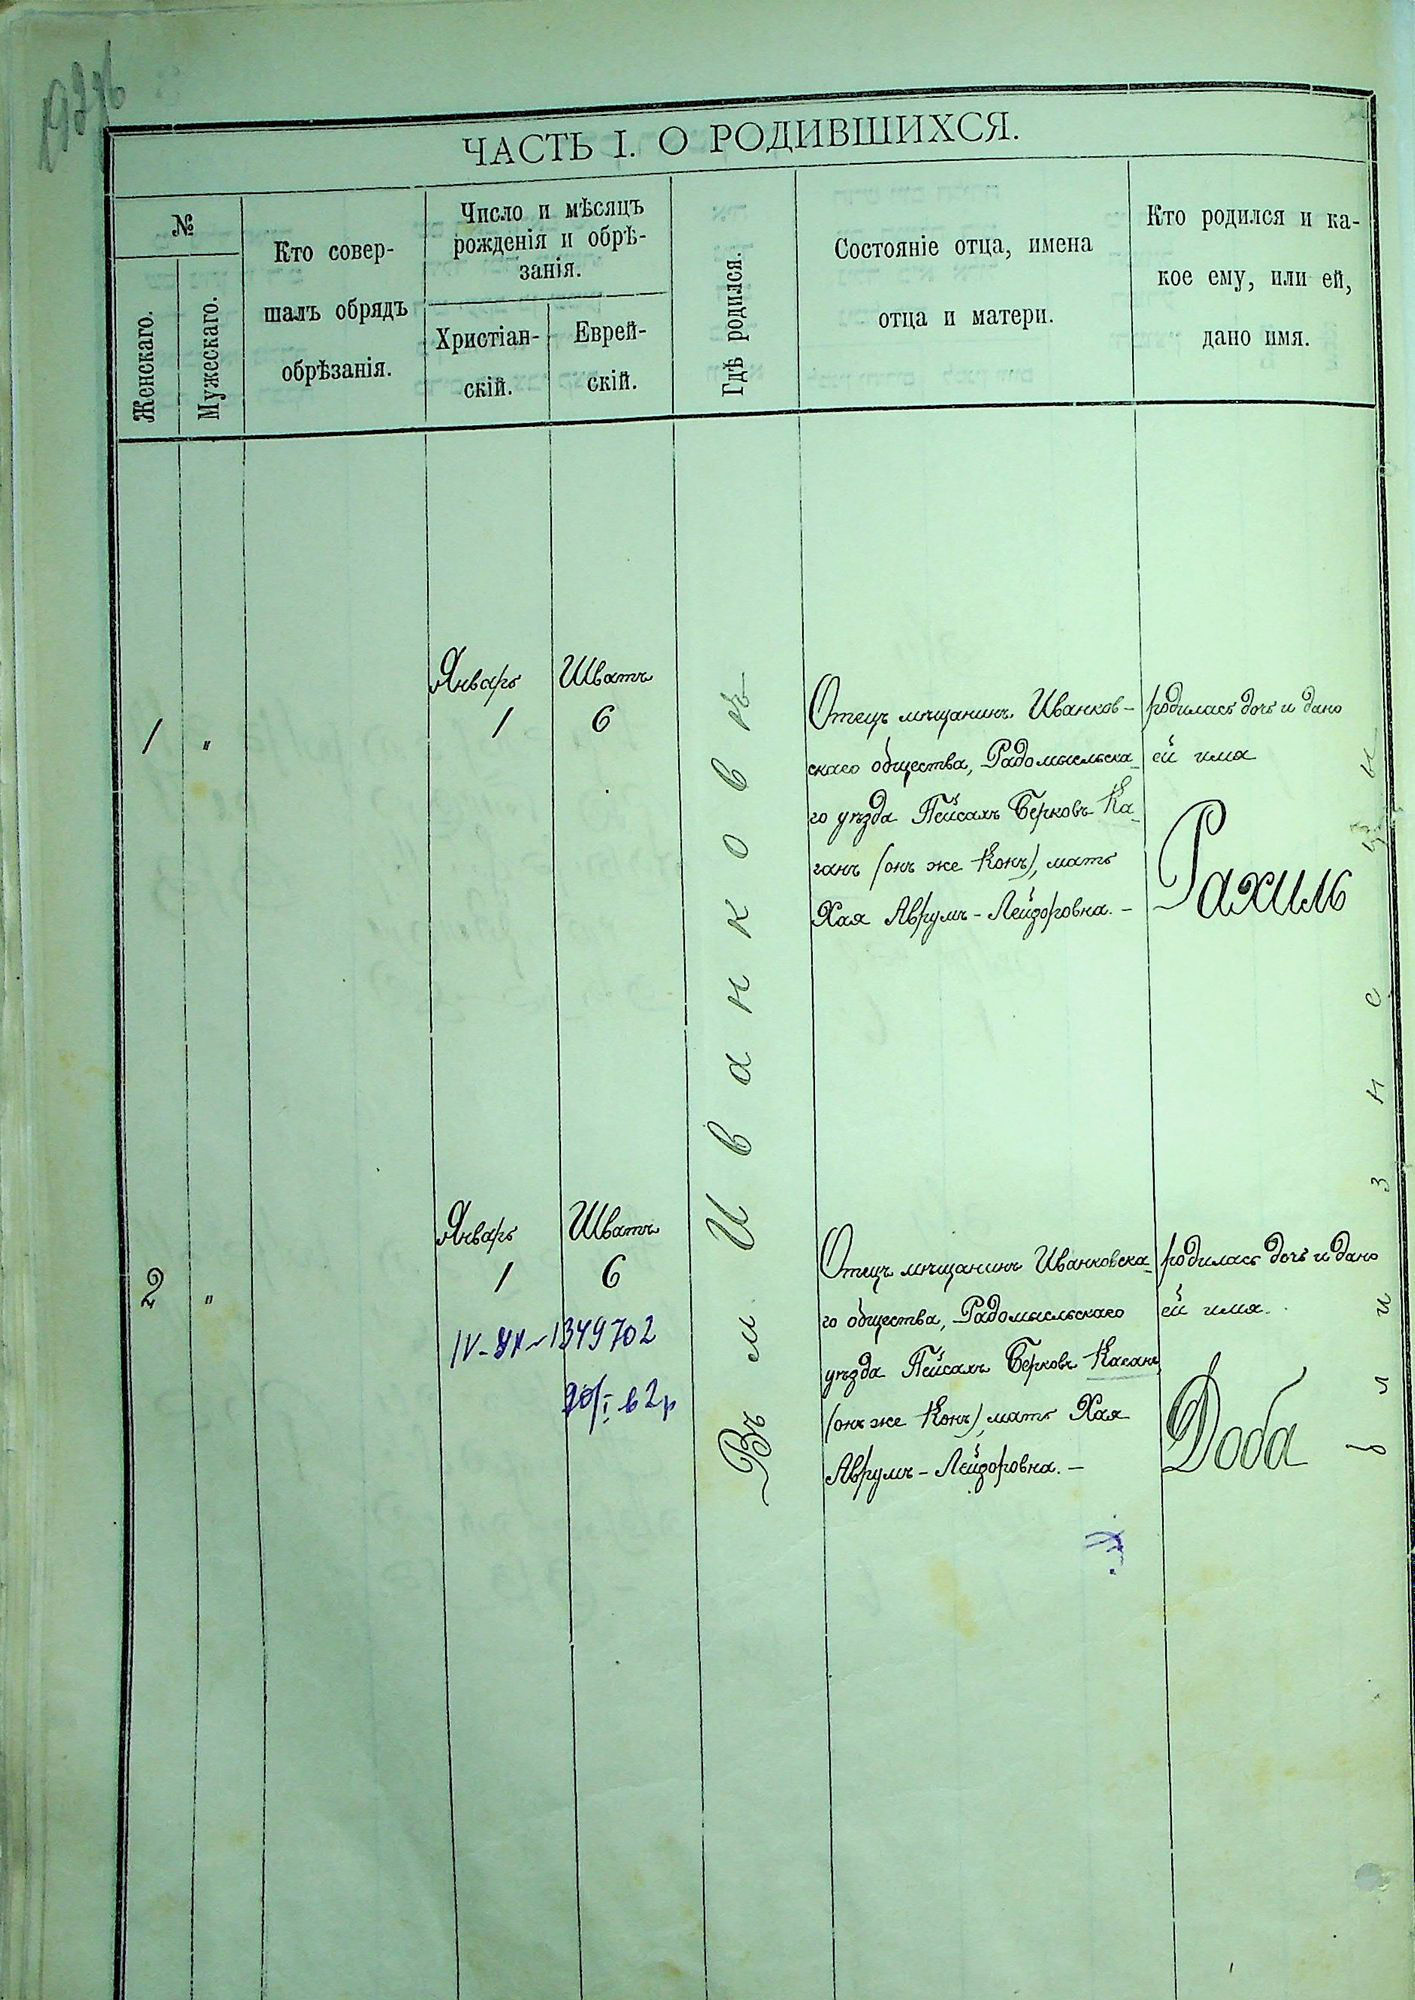 ЧАСТЬ I. О РОДИВШИХСЯ.
№
Женскаго.
Мужескаго.
Кто совер-
шалъ обрядъ
обрѣзанія.
Число и мѣсяцъ
рожденія и обрѣ-
занія.
Христіан-
скій.
Еврей-
скій.
Гдѣ родился.
Состояніе отца, имена
отца и матери.
Кто родился и ка-
кое ему, или ей,
дано имя.
1
"
Январь
1
Шватъ
6
Въ м. Иванковѣ
Отецъ мѣщанинъ Иванков-
скаго общества, Радомысльска-
го уѣзда Пейсахъ Берковъ Ка-
ганъ (онъ же Конъ), мать
Хая Аврумъ-Лейзоровна. –
родилась дочь и дано
ей имя
Рахиль
близнецы
2
"
Январь
1
Шватъ
6
1349702
Отецъ мѣщанинъ Иванковска-
го общества, Радомысльскаго
уѣзда Пейсахъ Берковъ Каганъ
(онъ же Конъ), мать Хая
Аврумъ-Лейзоровна. –
родилась дочь и дано
ей имя.
Доба